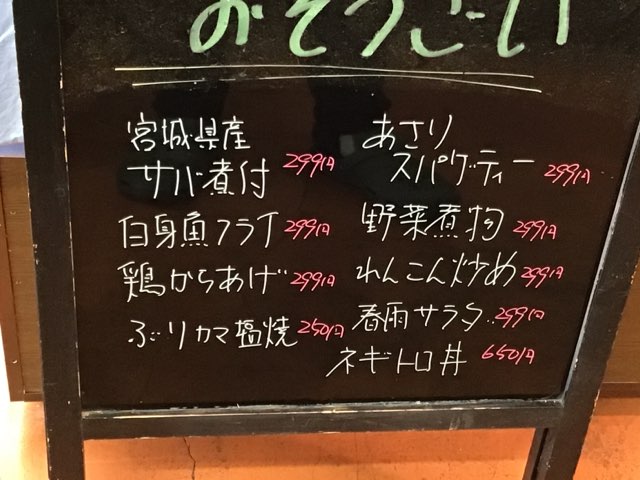 おそうざい
宮城県産
サバ煮付 299円
白身魚フライ 299円
鶏からあげ 299円
ぶりカマ塩焼 250円
あさり
スパゲティー 299円
野菜煮物 299円
れんこん炒め 299円
春雨サラダ 299円
ネギトロ丼 650円